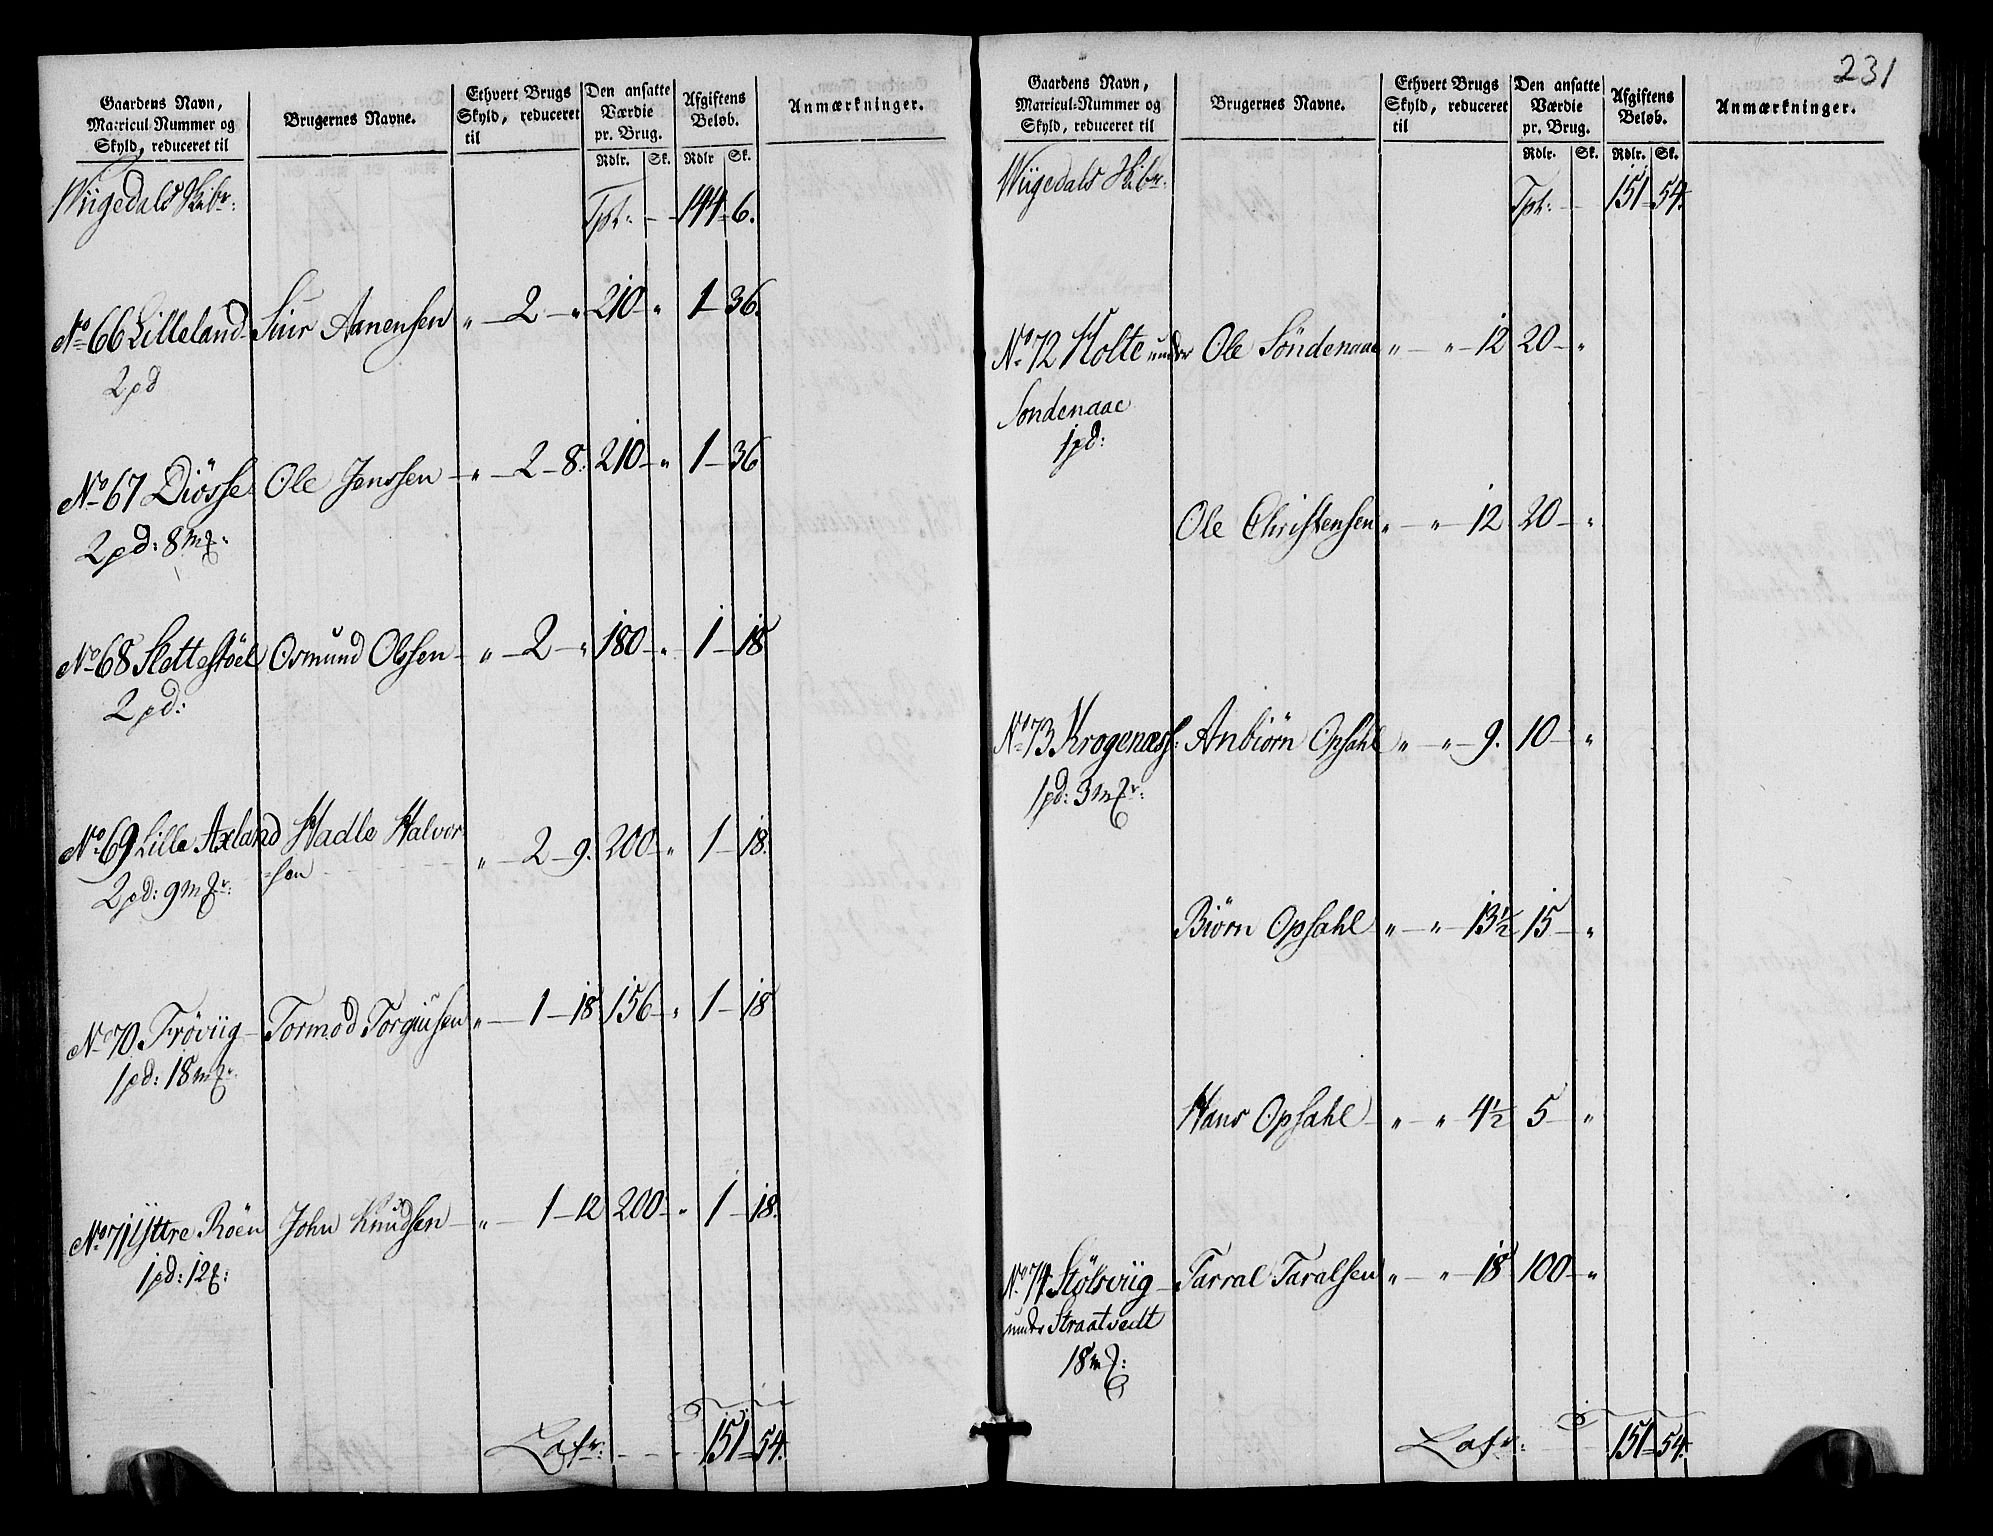 Gaardens Navn,
Matricul-Nummer og
Skyld, reduceret til
Brugernes Navne.
Ethvert Brugs
Skyld, reduceret
til
Den ansatte
Værdie
pr. Brug.
Rdlr. Sk.
Afgiftens
Beløb.
Rdlr Sk.
Anmærkninger.
Wiigedals Skibr:
Tpt: — 144 6.
No 66 Lilleland Siur Aanensen " — 2 — " 210 — " 1 — 36.
2pd
No 67 Diösse Ole Jenssen — " — 2 — 8. 210 — " 1 — 36
2pd: 8mr:
No 68 Slettestöel Osmund Olssen — " — 2 — " 180 — " 1 — 18
2pd:
No 69 Lille Axland Hadle Halvor " — 2 — 9. 200 — " 1 — 18.
2pd: 9mr: =sen
No 70 Fröviig — Tormod Torgiusen " — 1 — 18 156 — " 1 — 18
1pd: 18mr.
No 71 Yttre Röen John Knudsen — " — 1 — 12 200 — " 1 — 18.
1pd: 12:
Lafr: — 151 54.
231
Gaardens Navn,
Matricul-Nummer og
Skyld, reduceret til
Brugernes Navne.
Ethvert Brugs
Skyld, reduceret
til
Den ansatte
Værdie
pr. Brug.
Rdlr. Sk.
Afgiftens
Beløb.
Rdlr. Sk.
Anmærkninger.
Wiigedals Skibr:
Tpt: — 151 54.
No 72 Holte under Ole Söndenaae " — " — 12 20 — "
Söndenaae
1pd:
Ole Christensen " — " — 12 20 — "
No 73 Krogenæss: Anbiörn Opsahl " — " — 9. 10 — "
1pd: 3mr:
Biörn Opsahl " — " — 13½ 15 — "
Hans Opsahl — " — " 4½ 5 — "
No 74 Stölsviig — Tarral Taralsen " — " — 18 100 — "
under Straatvedt
18m:
Lafr: — 151 54.